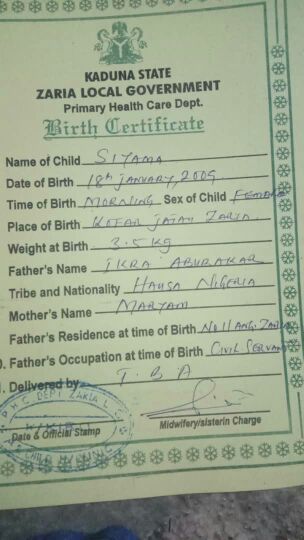 KADUNA STATE
ZARIA LOCAL GOVERNMENT
Primary Health Care Dept.
Birth Certificate
Name of Child SIYAMA
Date of Birth 18th JANUARY, 2009
Time of Birth MORNING Sex of Child FEMALE
Place of Birth KOFAR JATAU ZARIA.
Weight at Birth 3.5kg
Father's Name IKRA ABUBAKAR
Tribe and Nationality HAUSA NIGERIA
Mother's Name MARYAM
Father's Residence at time of Birth No 11 ANG.
0. Father's Occupation at time of Birth CIVIL SERVANT
1. Delivered by T. B A
P.H.C. DEPT ZARIA L.G.
Date & Official Stamp
Midwifery/sisterin Charge